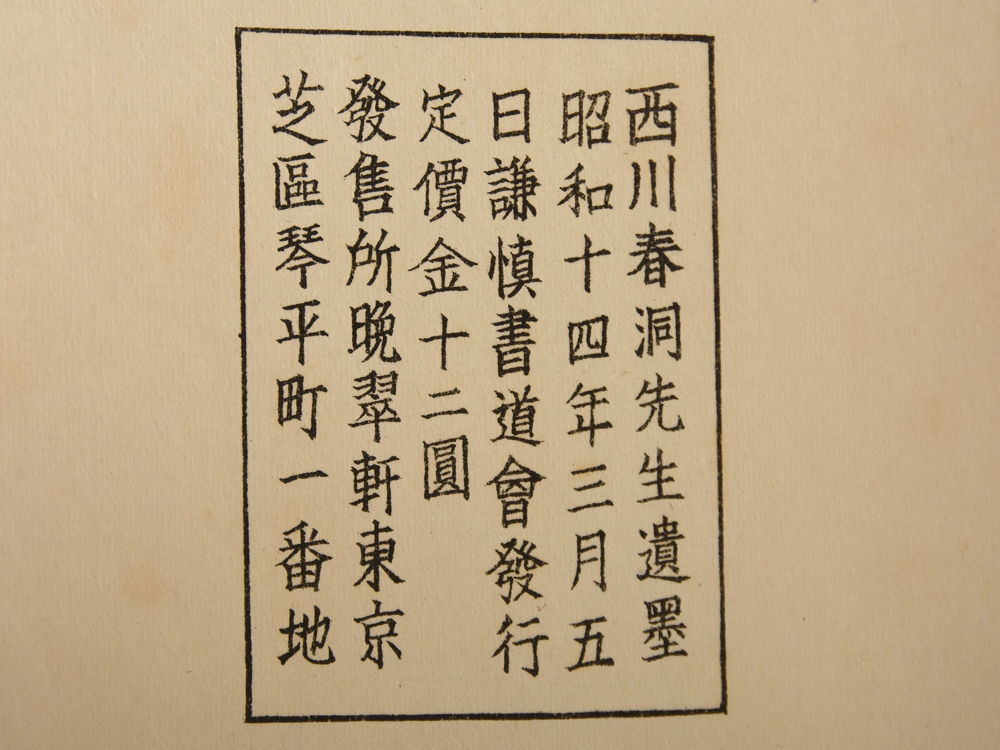 西川春洞先生遺墨
昭和十四年三月五
日謙慎書道會發行
定價金十二圓
發售所晩翠軒東京
芝區琴平町一番地